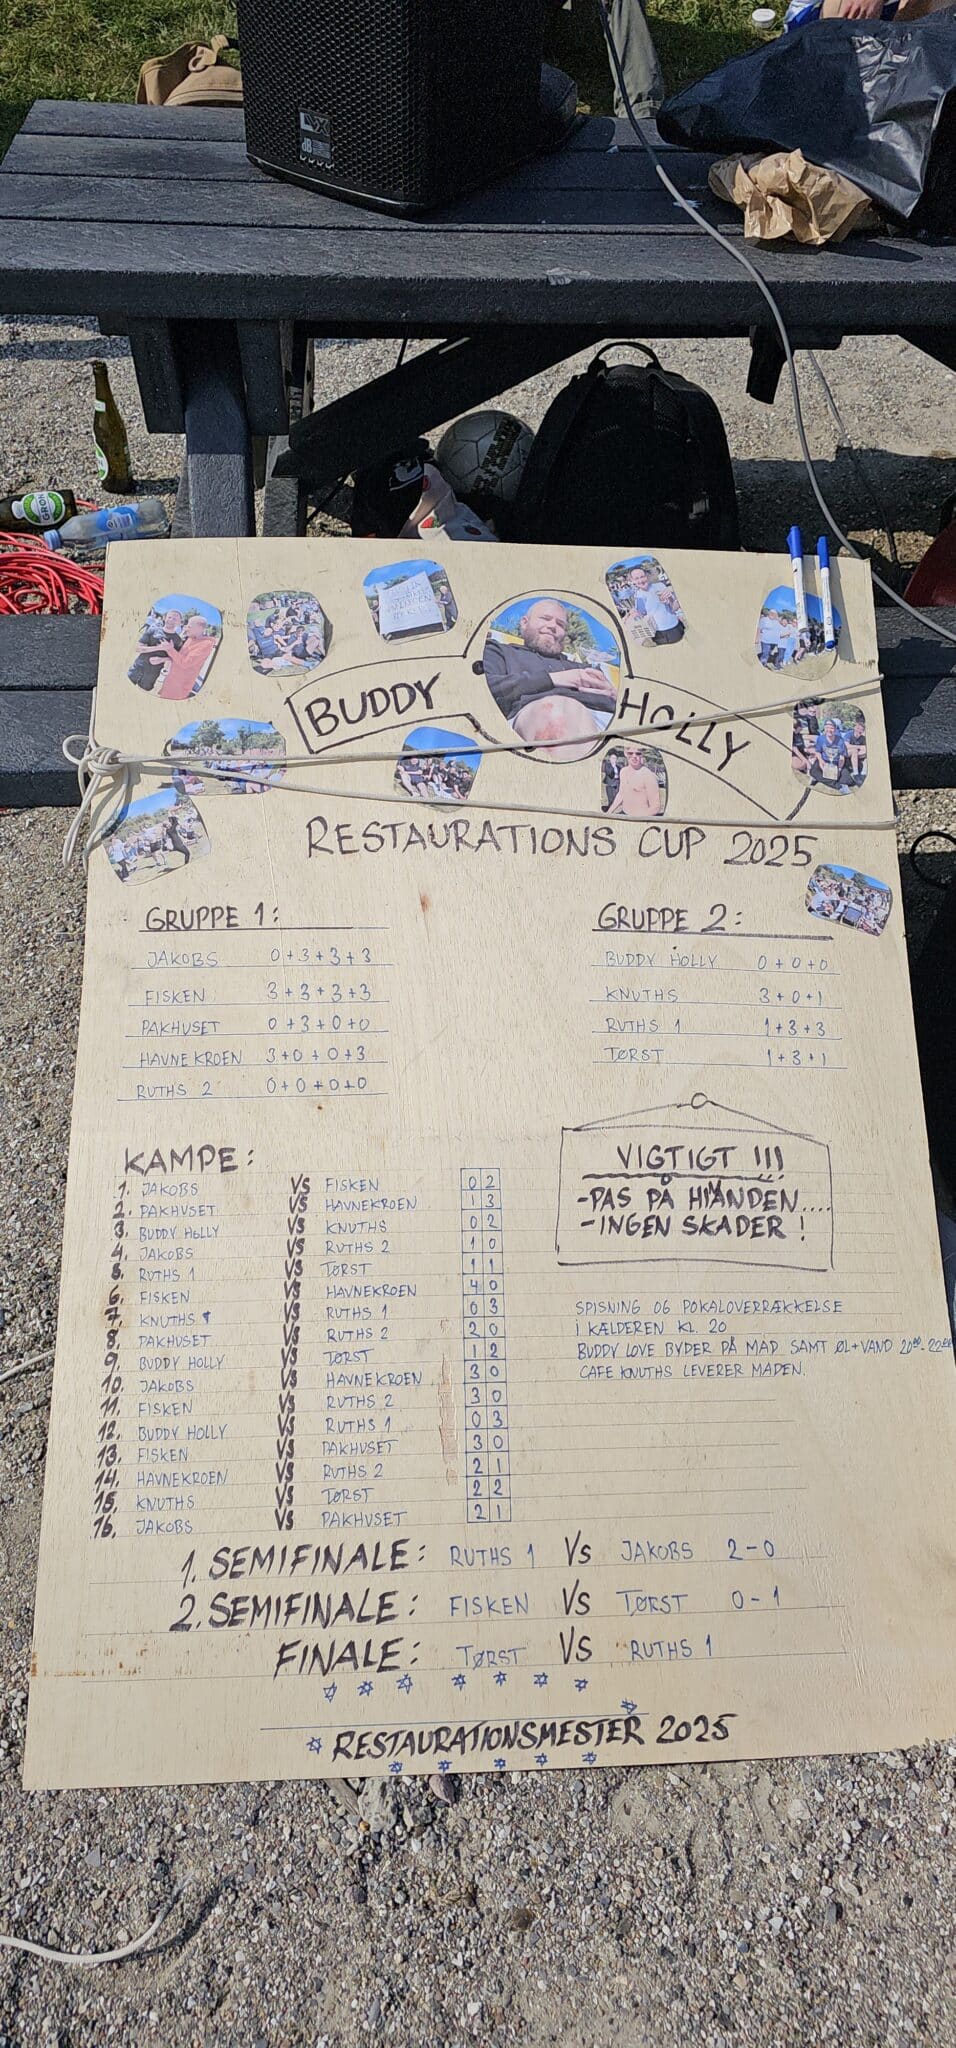 dB
GRØN
BUDDY HOLLY
RESTAURATIONS CUP 2025
GRUPPE 1:
JAKOBS 0+3+3+3
FISKEN 3+3+3+3
PAKHUSET 0+3+0+0
HAVNEKROEN 3+0+0+3
RUTHS 2 0+0+0+0
GRUPPE 2:
BUDDY HOLLY 0+0+0
KNUTHS 3+0+1
RUTHS 1 1+3+3
TØRST 1+3+1
VIGTIGT !!!
-PAS PÅ HÅNDEN....
-INGEN SKADER!
KAMPE:
1. JAKOBS VS FISKEN 0 2
2. PAKHUSET VS HAVNEKROEN 1 3
3. BUDDY HOLLY VS KNUTHS 0 2
4. JAKOBS VS RUTHS 2 1 0
5. RUTHS 1 VS TØRST 1 1
6. FISKEN VS HAVNEKROEN 4 0
7. KNUTHS VS RUTHS 1 0 3
8. PAKHUSET VS RUTHS 2 2 0
9. BUDDY HOLLY VS TØRST 1 2
10. JAKOBS VS HAVNEKROEN 3 0
11. FISKEN VS RUTHS 2 3 0
12. BUDDY HOLLY VS RUTHS 1 0 3
13. FISKEN VS PAKHUSET 3 0
14. HAVNEKROEN VS RUTHS 2 2 1
15. KNUTHS VS TØRST 2 2
16. JAKOBS VS PAKHUSET 2 1
SPISNING OG POKALOVERRÆKKELSE
I KÆLDEREN KL. 20
BUDDY LOVE BYDER PÅ MAD SAMT ØL+VAND 20⁰⁰-22⁰⁰
CAFE KNUTHS LEVERER MADEN.
1. SEMIFINALE: RUTHS 1 VS JAKOBS 2-0
2. SEMIFINALE: FISKEN VS TØRST 0-1
FINALE: TØRST VS RUTHS 1
RESTAURATIONSMESTER 2025